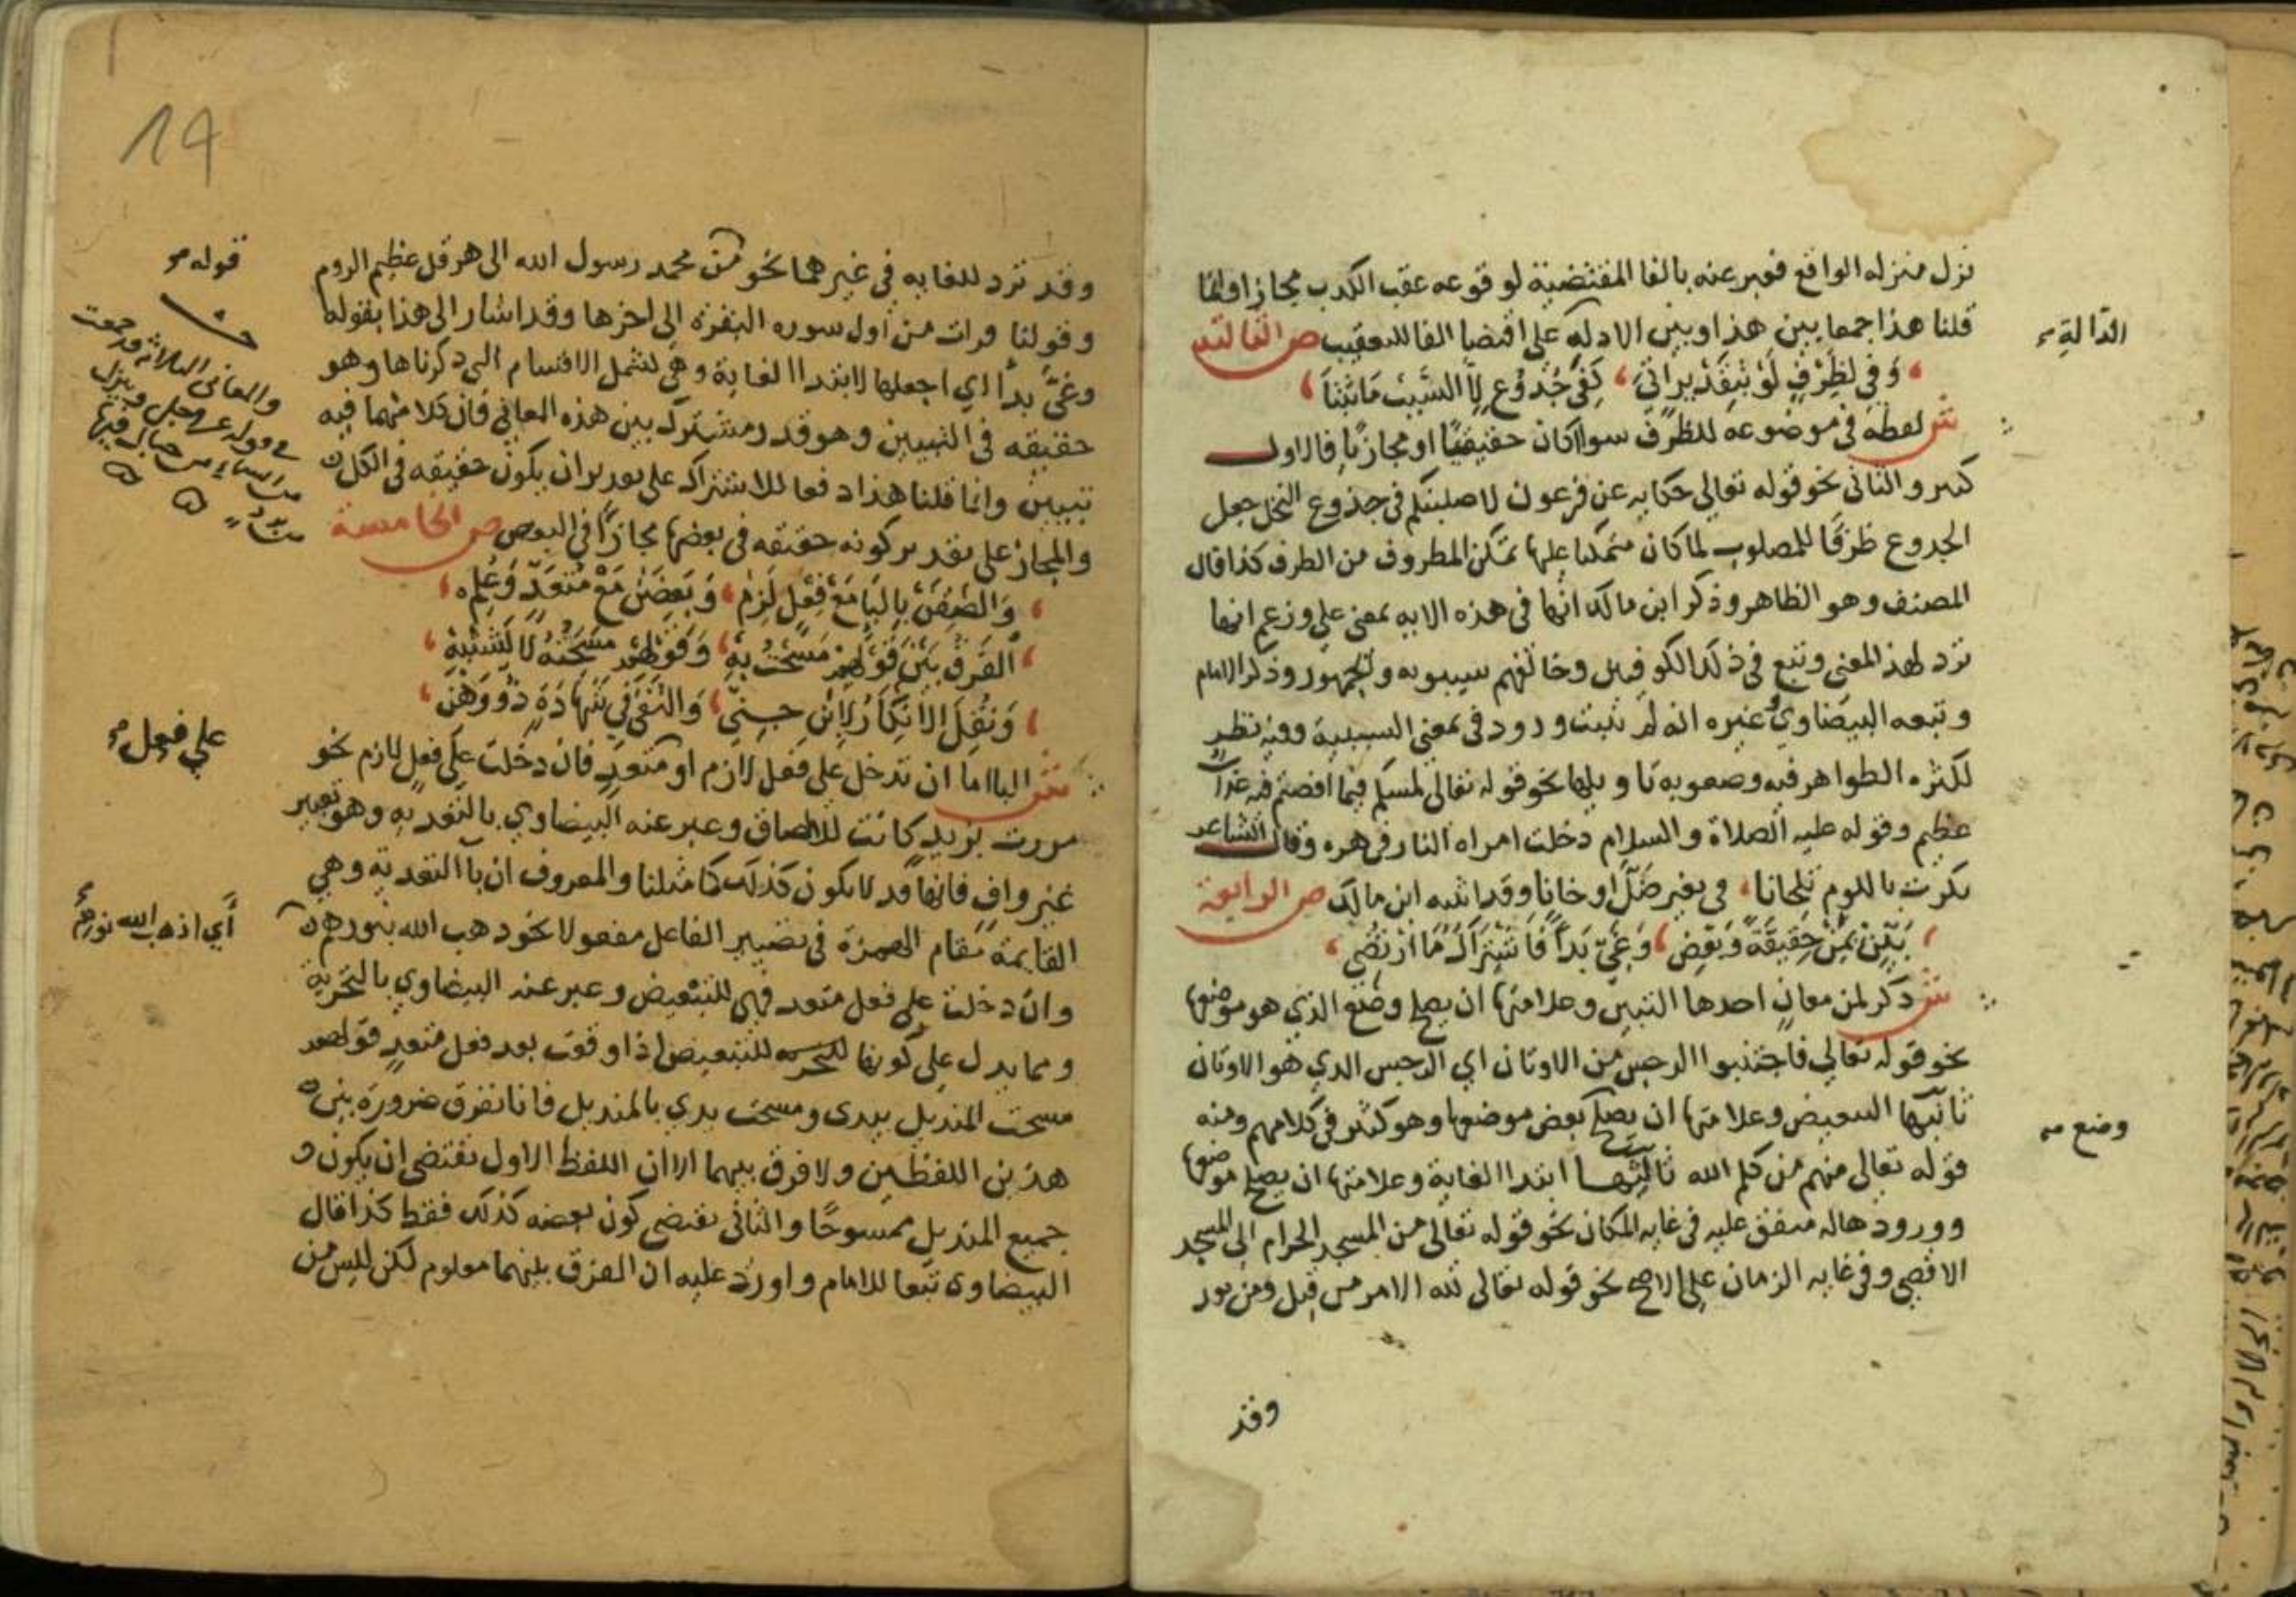 نزل منزله الواقع فعبر عنه بالفا المقتضية لوقوعه عقب الكذب مجازا وانما
قلنا هذا جمعا بين هذا وبين الادلة على اقتضا الفا للتعقيب ص الثالثة
الدالة
وفي لظرف لو بتقدير اتى كفي جذوع لا السبب ما ثبتا
ش لفظة في موضوعه للظرف سوا كان حقيقيا او مجازيا فالاول
كثير والثاني نحو قوله تعالى حكاية عن فرعون لاصلبنكم في جذوع النخل جعل
الجدوع ظرفا للمصلوب لما كان متمكنا عليها تمكن المظروف من الظرف كذا قال
المصنف وهو الظاهر وذكر ابن مالك انها في هذه الايه بمعنى على وزعم انها
ترد لهذ المعنى وتبع في ذلك الكوفيين وخالفهم سيبويه والجمهور وذكر الامام
وتبعه البيضاوي وغيره انه لم يثبت ورود في بمعنى السببية وفيه نظر
لكثره الظواهر فيه وصعوبه تاويلها نحو قوله تعالى لمسكم فيما افضتم فيه عذاب
عظيم وقوله عليه الصلاة والسلام دخلت امراة النار في هره وقال الشاعر
بكرت باللوم تلحانا في بعير ضل او حانا وقد انشده ابن مالك ص الرابعة
بين بمن حقيقة وبعض وغي بدأ فاشتراك ما ارتضي
ش ذكر لمن معان احدها التبيين وعلامتها ان يصلح وضع الذي هو موضعها
نحو قوله تعالى فاجتنبوا الرجس من الاوثان اي الرجس الذي هو الاوثان
ثانيها التبعيض وعلامتها ان يصلح بعض موضعها وهو كثير في كلامهم ومنه
وضع
قوله تعالى منهم من كلم الله ثالثها ابتدا الغاية وعلامتها ان يصلح موضعها
وورودها له متفق عليه في غايه المكان نحو قوله تعالى من المسجد الحرام الى المسجد
الاقصى وفي غايه الزمان على الاصح نحو قوله تعالى لله الامر من قبل ومن بعد
وقد
19
وقد ترد للغايه في غيرهما نحو من محمد رسول الله الى هرقل عظيم الروم
قوله
وقولنا قرات من اول سوره البقرة الى اخرها وقد اشار الى هذا بقوله
وغي بدأ اي اجعلها لابتدا الغاية وهي لتشمل الاقسام التي ذكرناها وهو
حقيقه في التبيين وهو قدر مشترك بين هذه المعاني فان كلا منهما فيه
تبيين وانما قلنا هذا دفعا للاشتراك على تقدير ان يكون حقيقه في الكل
والمجاز على تقدير كونه حقيقه في بعضها مجازا في البعض ص الخامسة
والمعاني الثلاثة قد جمعت
في قوله عز وجل وينزل
من السماء من جبال فيها
من برد
والصقن بالبا مع فعل لزم وبعضن مع متعد وعلم
الفرق بين قولهم مسحت به وقولهم مسحته لا يشتبه
ونقل الانكار لابن جني والنفي في شهادة ذو وهن
ش البا اما ان تدخل على فعل لازم او متعد فان دخلت على فعل لازم نحو
على فعل
مررت بزيد كانت للالصاق وعبر عنه البيضاوي بالتعديه وهو تعبير
غير واف فانها قد لا يكون كذلك كما مثلنا والمعروف ان با التعدية وهي
القايمة مقام الهمزة في تصيير الفاعل مفعولا نحو ذهب الله بنورهم
أي اذهب الله نورهم
وان دخلت على فعل متعد فهي للتبعيض وعبر عنه البيضاوي بالتجزية
ومما يدل على كونها للتبعيض اذا وقعت بعد فعل متعد قولهم
مسحت المنديل بيدي ومسحت يدي بالمنديل فانا نفرق ضرورة بين
هذين اللفظين ولا فرق بينهما الا ان اللفظ الاول تقتضي ان يكون
جميع المنديل ممسوحا والثاني تقتضي كون بعضه كذلك فقط كذا قال
البيضاوي تبعا للامام واورد عليه ان الفرق بينهما معلوم لكن ليس من